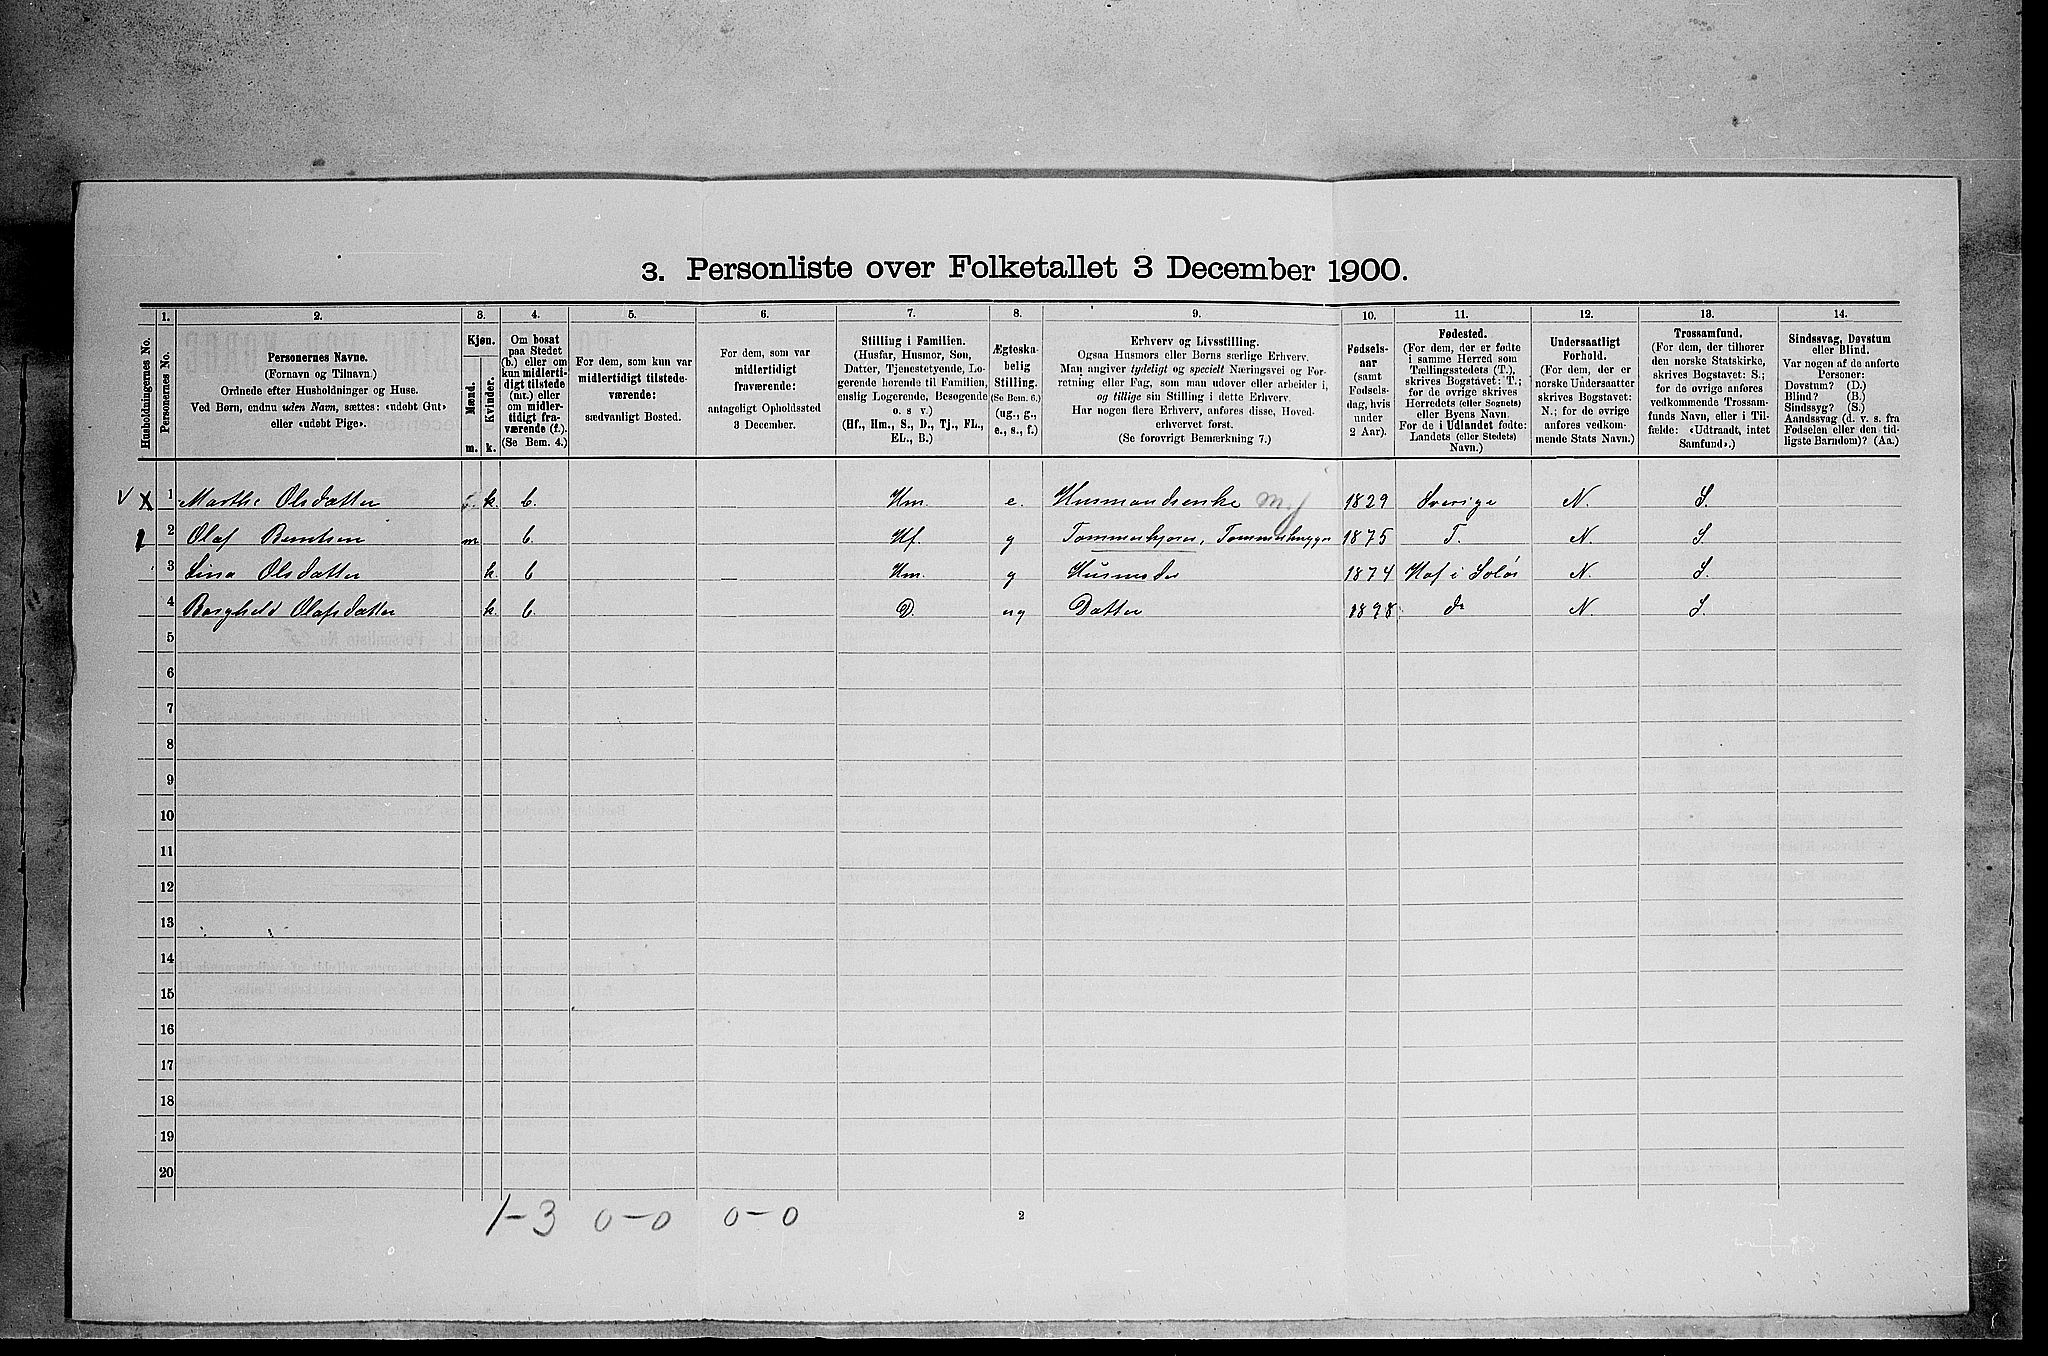 3. Personliste over Folketallet 3 December 1900.
1. 2. 3. 4. 5. 6. 7. 8. 9. 10. 11. 12. 13. 14.
Husholdningernes No.
Personernes No.
Personernes Navne.
(Fornavn og Tilnavn.)
Ordnede efter Husholdninger og Huse.
Ved Børn, endnu uden Navn, sættes: «udøbt Gut»
eller «udøbt Pige».
Kjøn.
Mænd.
Kvinder.
m. k.
Om bosat
paa Stedet
(b.) eller om
kun midlerti-
digt tilstede
(mt.) eller
om midler-
tidigt fra-
værende (f.).
(Se Bem. 4.)
For dem, som kun var
midlertidigt tilstede-
værende:
sædvanligt Bosted.
For dem, som var
midlertidigt
fraværende:
antageligt Opholdssted
3 December.
Stilling i Familien.
(Husfar, Husmor, Søn,
Datter, Tjenestetyende, Lo-
gerende hørende til Familien,
enslig Logerende, Besøgende
o. s v.)
(Hf., Hm., S., D., Tj., FL.,
EL., B.)
Ægteska-
belig
Stilling.
(Se Bem. 6.)
(ug., g.,
e., s., f.)
Erhverv og Livsstilling.
Ogsaa Husmors eller Børns særlige Erhverv.
Man angiver tydeligt og specielt Næringsvei og For-
retning eller Fag, som man udøver eller arbeider i,
og tillige sin Stilling i dette Erhverv.
Har nogen flere Erhverv, anføres disse, Hoved-
erhvervet først.
(Se forøvrigt Bemærkning 7.)
Fødsels-
aar
(samt
Fødsels-
dag, hvis
under
2 Aar).
Fødested.
(For dem, der er fødte
i samme Herred som
Tællingsstedets (T.),
skrives Bogstavet: T.;
for de øvrige skrives
Herredets (eller Sognets)
eller Byens Navn.
For de i Udlandet fødte:
Landets (eller Stedets)
Navn.)
Undersaatligt
Forhold.
(For dem, der er
norske Undersaatter
skrives Bogstavet:
N.; for de øvrige
anføres vedkom-
mende Stats Navn.)
Trossamfund.
(For dem, der tilhører
den norske Statskirke,
skrives Bogstavet: S.;
for de øvrige anføres
vedkommende Trossam-
funds Navn, eller i Til-
fælde: «Udtraadt, intet
Samfund».)
Sindssvag, Døvstum
eller Blind.
Var nogen af de anførte
Personer:
Døvstum? (D.)
Blind? (B.)
Sindssyg? (S.)
Aandssvag (d. v. s. fra
Fødselen eller den tid-
ligste Barndom)? (Aa.)
V X 1 Marthe Olsdatter k. b. Hm. e. Husmandsenke 1829 Sverige N. S.
2 Olaf Berntsen m b. Hf. g Tømmerkjører, Tømmerhugger 1875 T. N. S.
3 Lina Olsdatter k. b Hm. g Husmoder 1874 Hof i Solør N. S.
4 Borghild Olafsdatter k. b. D. ug Datter 1898 do N. S.
5
6
7
8
9
10
11
12
13
14
15
16
17
18
19
20
1-3 0-0 0-0
2